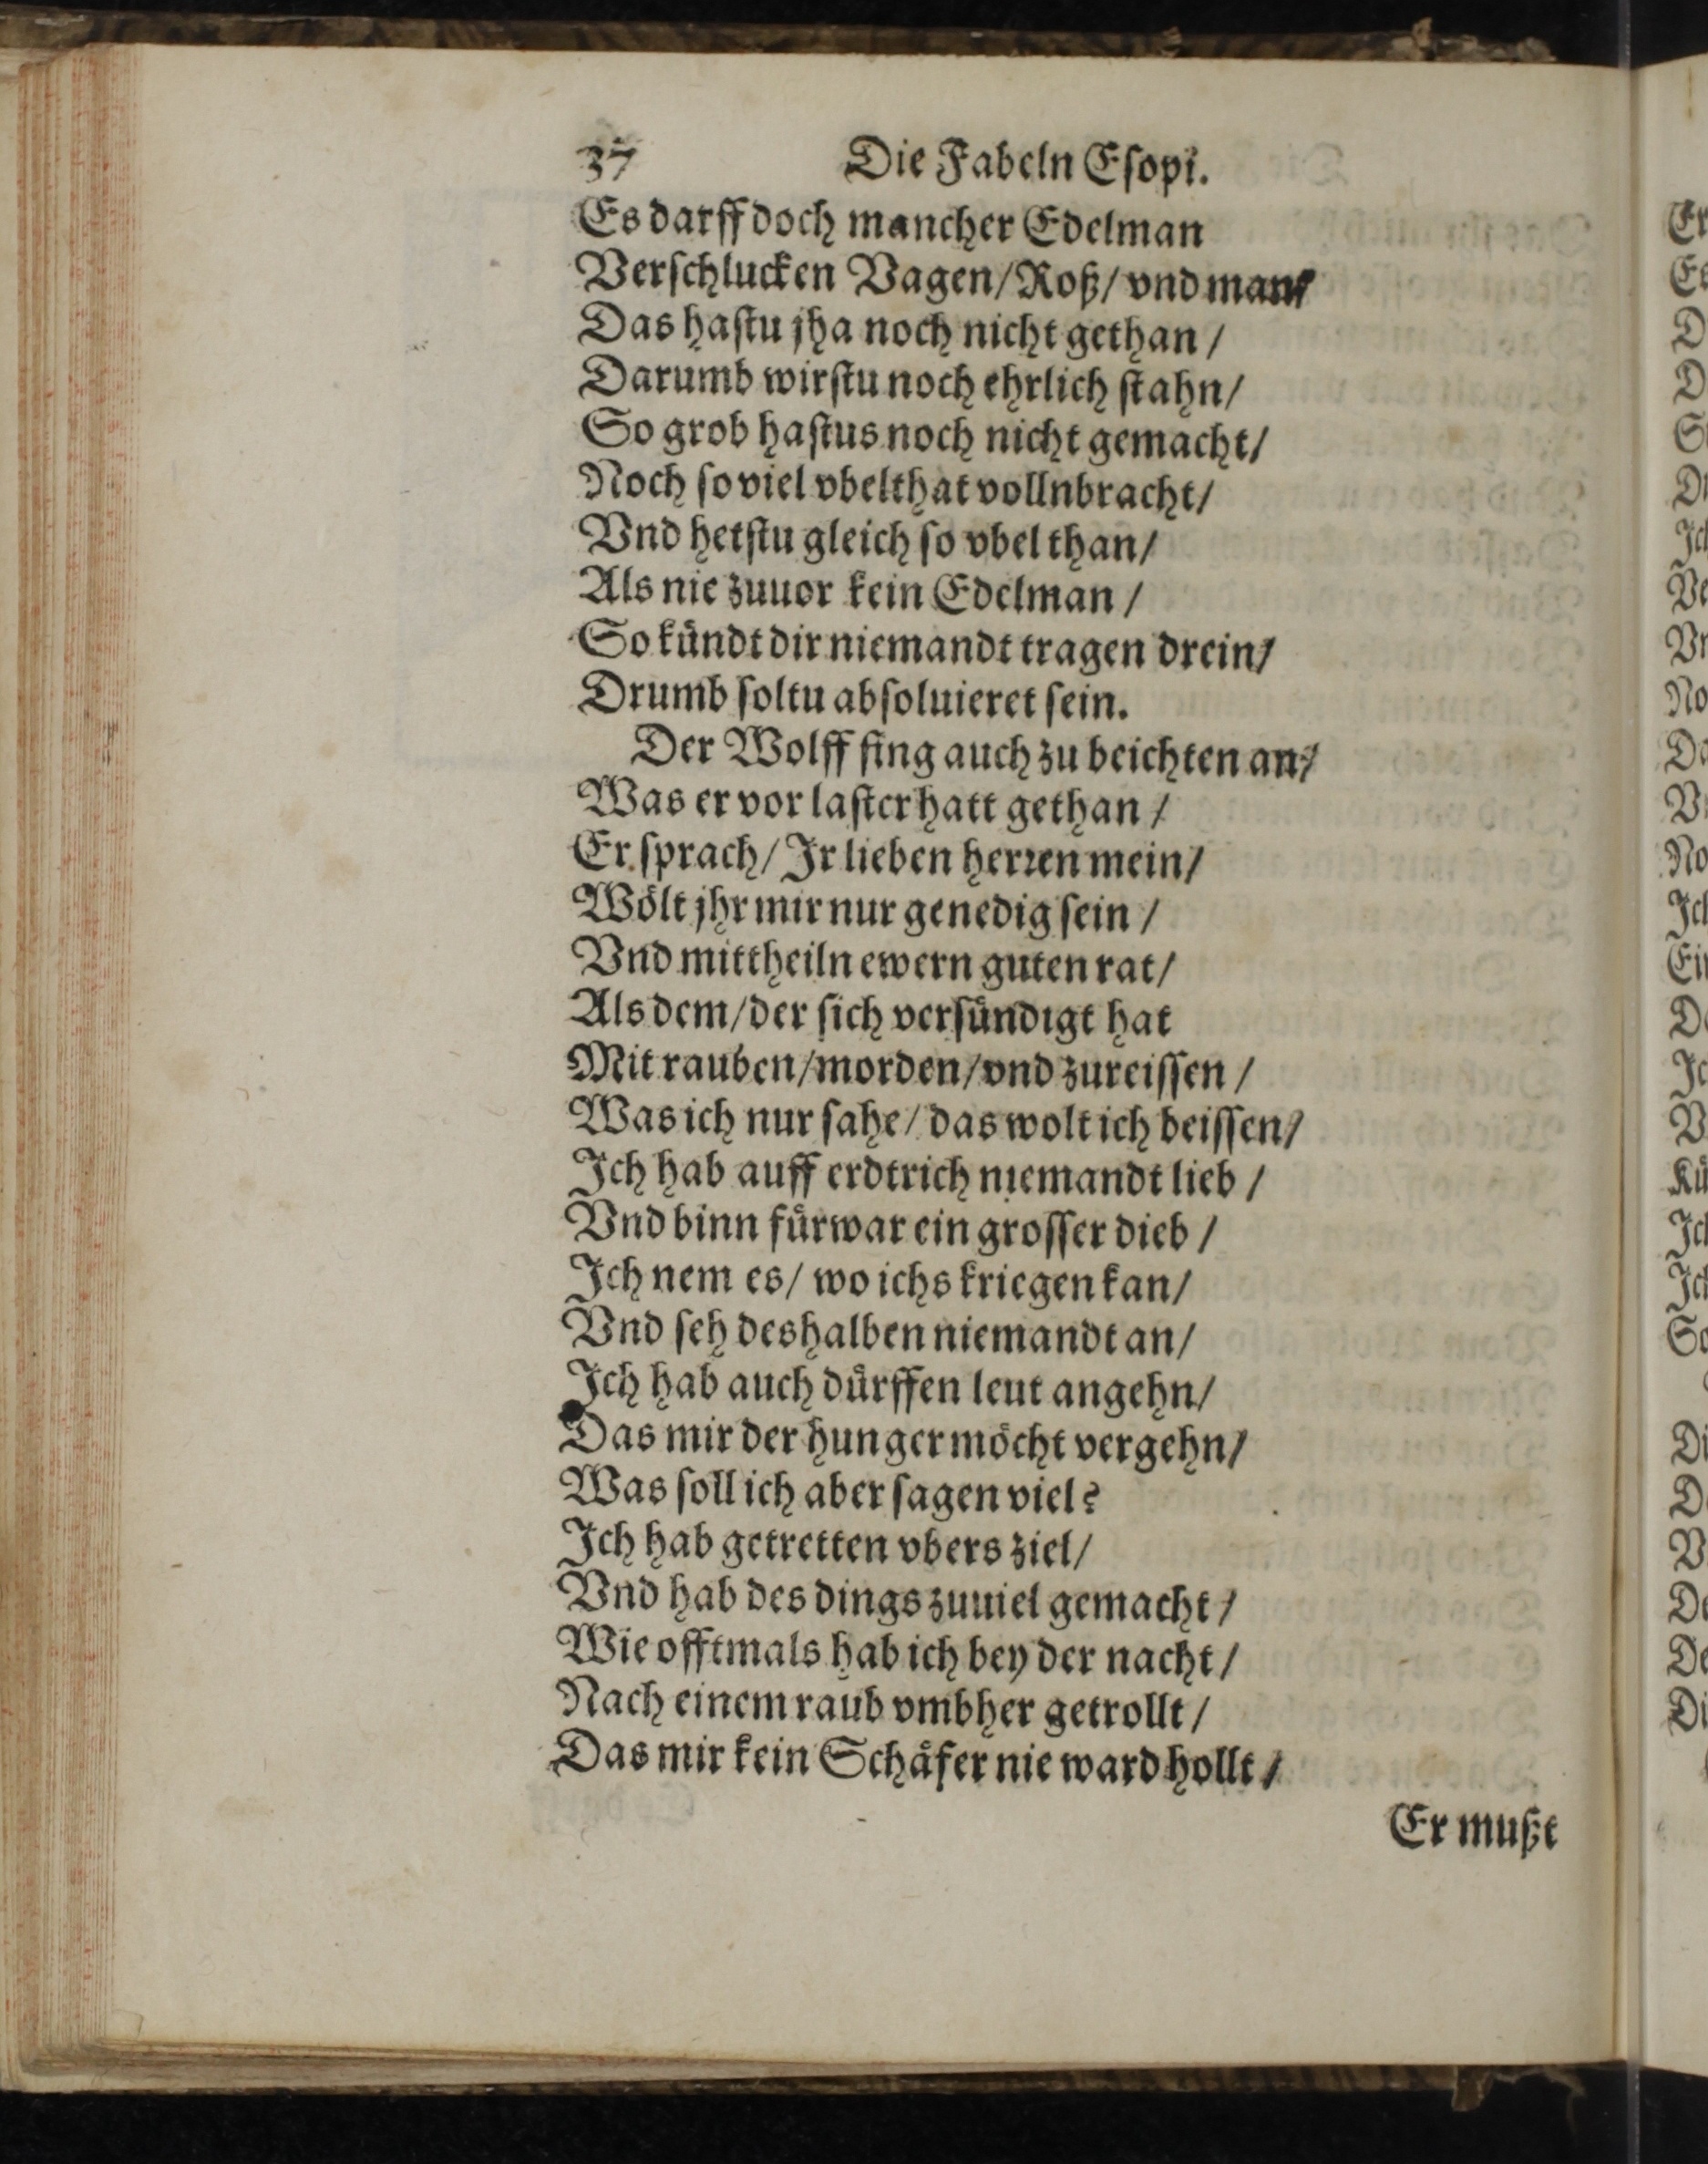 37 Die Fabeln Eſopi.
Es darff doch mancher Edelman
Verſchlucken Vagen/ Roß/ vnd man/
Das haſtu jha noch nicht gethan /
Darumb wirſtu noch ehrlich ſtahn/
So grob haſtus noch nicht gemacht/
Noch ſo viel vbelthat vollnbracht/
Vnd hetſtu gleich ſo vbel than/
Als nie zuuor kein Edelman /
So kündt dir niemandt tragen drein/
Drumb ſoltu abſoluieret ſein.
Der Wolff fing auch zu beichten an/
Was er vor laſter hatt gethan /
Er ſprach/ Jr lieben herꝛen mein/
Wölt jhr mir nur genedig ſein /
Vnd mittheiln ewern guten rat/
Als dem/ der ſich verſündigt hat
Mit rauben/ morden/ vnd zureiſſen /
Was ich nur ſahe/ das wolt ich beiſſen/
Jch hab auff erdtrich niemandt lieb /
Vnd binn fürwar ein groſſer dieb /
Jch nem es/ wo ichs kriegen kan/
Vnd ſeh deshalben niemandt an/
Jch hab auch dürffen leut angehn/
Das mir der hunger möcht vergehn/
Was ſoll ich aber ſagen viel?
Jch hab getretten vbers ziel/
Vnd hab des dings zuuiel gemacht /
Wie offtmals hab ich bey der nacht /
Nach einem raub vmbher getrollt /
Das mir kein Schäfer nie ward hollt /
Er mußt